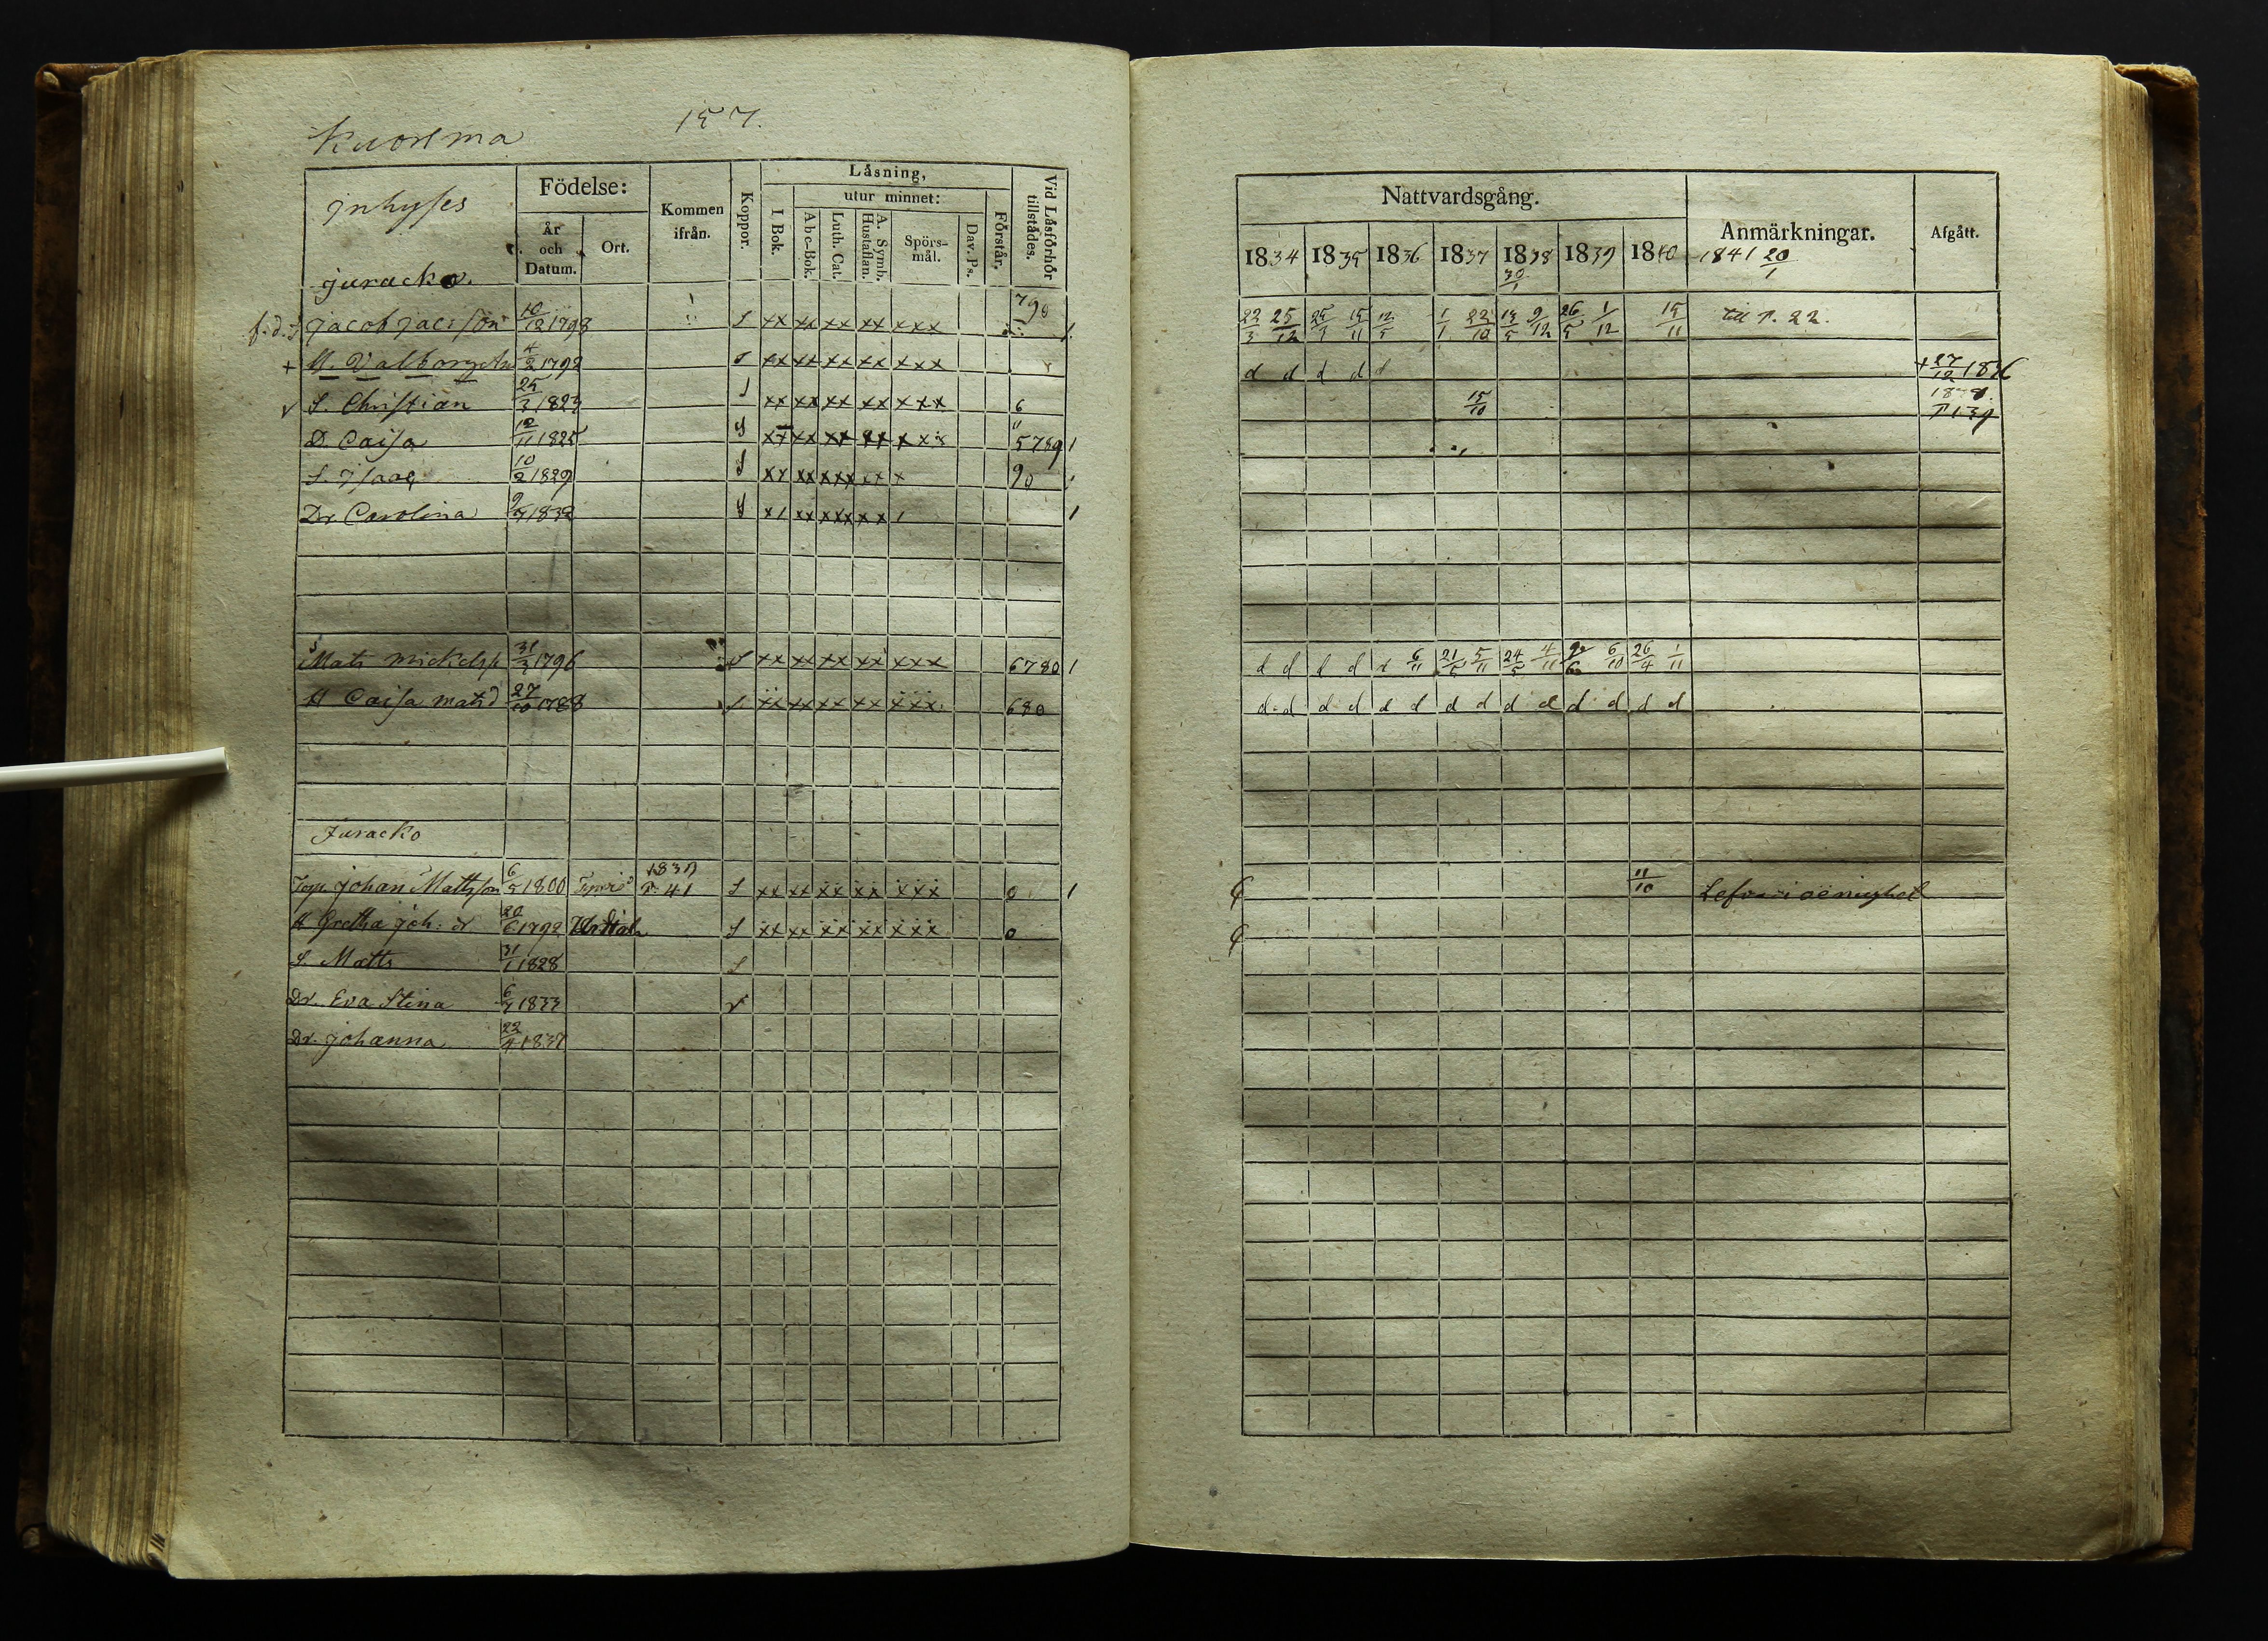 157.
Kuorlma
Inhyses
Juracko.
Födelse:
År och Datum.
Ort.
Kommen ifrån.
Koppor.
Låsning,
I Bok.
utur minnet:
A b c-Bok.
Luth. Cat.
A. Symb. Hustaflan.
Spörs-mål.
Dav. Ps.
Förstår,
Vid Låsförhör tillstådes.
f. d. Jacob Jacsson 10/12 1798 S xx xx xx xx xxx 790 1
+ H. Valborg 4/2 1792 xx xx xx xx xxx
v S. Christian 25/3 1823 xx xx xx xx xxx 6
D. Caisa 12/11 1825 xx xx xx xxx 5789 1
S. Isaac 10/2 1829 xx xx xxx xx x 90
Dr Carolina 9/7 1832 x1 xx xxx xx 1 1
Mats Mickelss 31/3 1796 xx xx xx xx xxx 6780 1
H Caisa Matsd 27/10 1788 xx xx xx xx xxx 680
Juracko
Johan Mattsson 6/5 1800 1839 P. 41 S xx xx xx xx xxx 0 1
H Gretha Joh: dr 20/6 1792 S xx xx xx xx xxx 0
S. Matts 31/1 1828 S
Dr. Eva Stina 6/7 1833
Dr. Johanna 22/4 1837
Nattvardsgång.
Anmärkningar.
Afgått.
1834 1835 1836 1837 1838 1839 1840 1841 20/1
30/1
22/3 25/12 25/3 15/11 12/5 1/1 22/10 13/5 9/12 26/5 1/12 15/11 till P. 22.
d d d d d + 27/12 1836
15/10 P 139
d d d d 6/11 21/5 5/11 24/5 4/11 6/10 26/4 1/11
d d d d d d d d d d d d d d
11/10 Lefver i oenighet